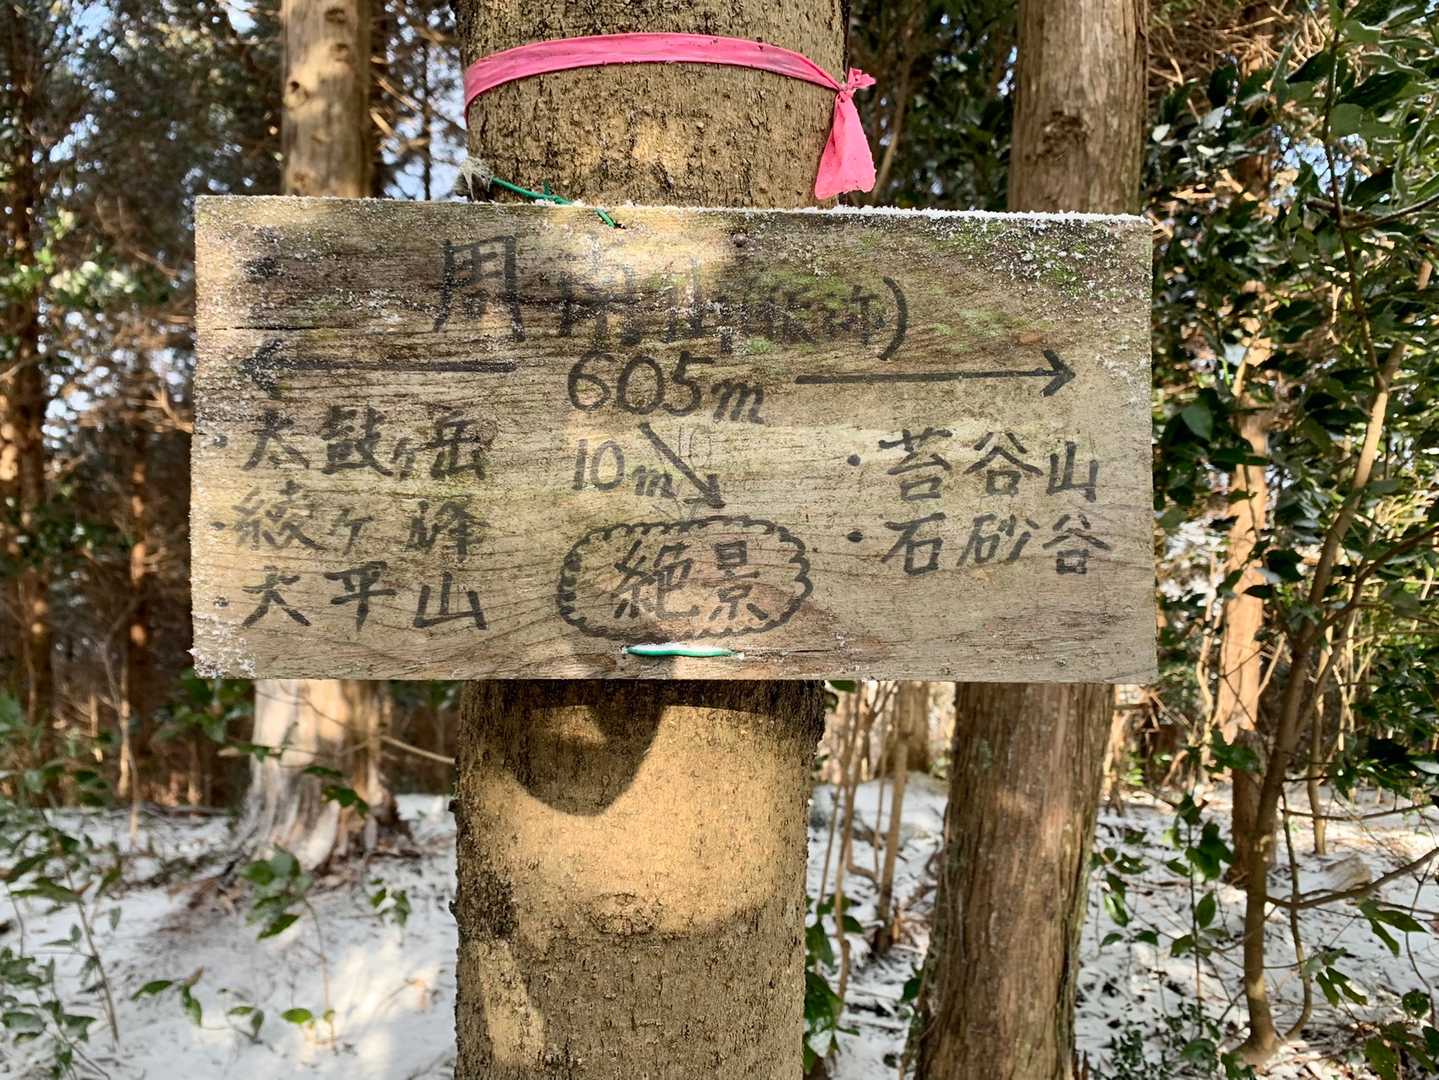 周南山(仮称)
← 605m →
10m ↘
・太鼓ヶ岳
・綾ヶ峰
・大平山
絶景
・苔谷山
・石砂谷